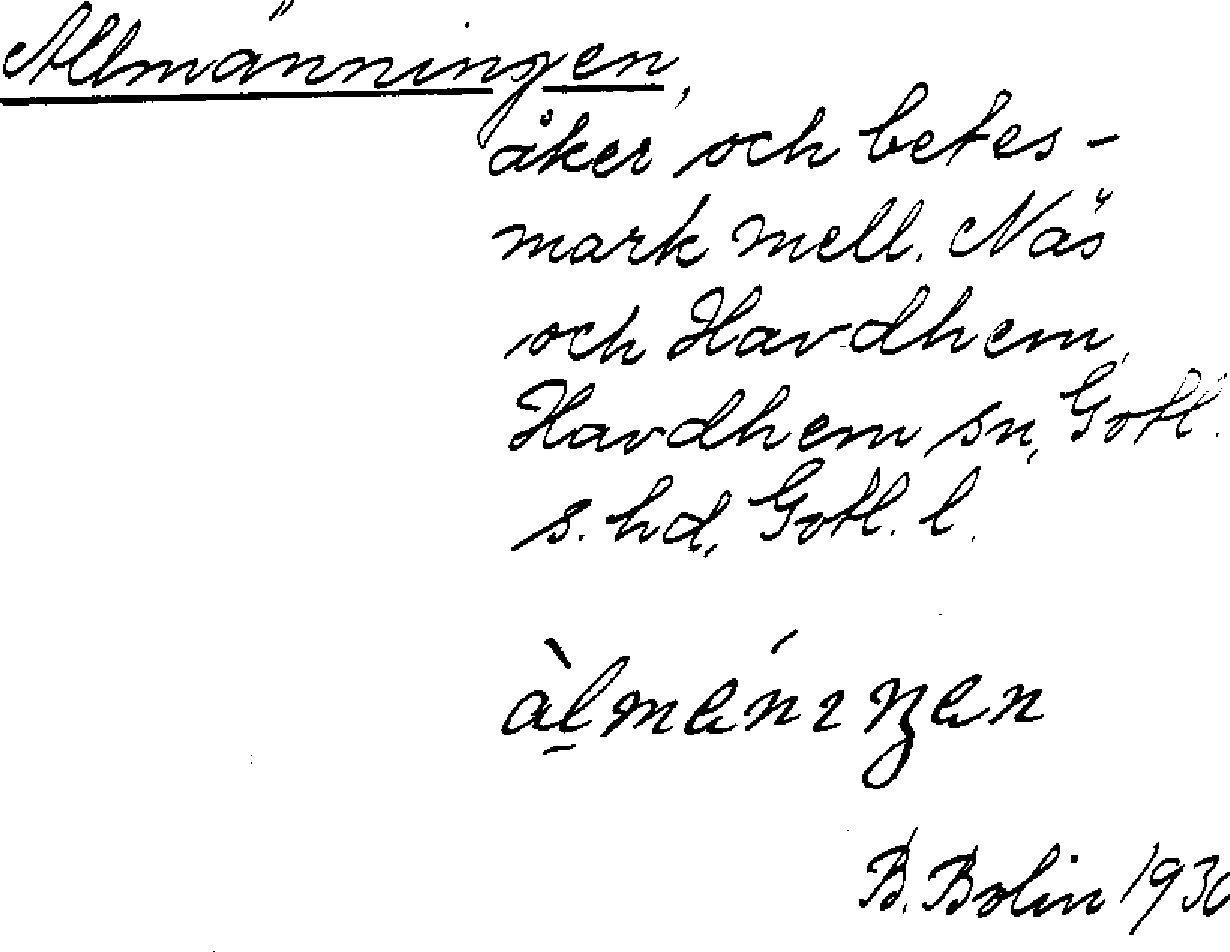 Allmänningen,
åker och betes-
mark mell. Näs
och Havdhem,
Havdhem sn, Gotl.
s. hd, Gotl. l.
àl̠mäníŋän
B. Bolin 1930